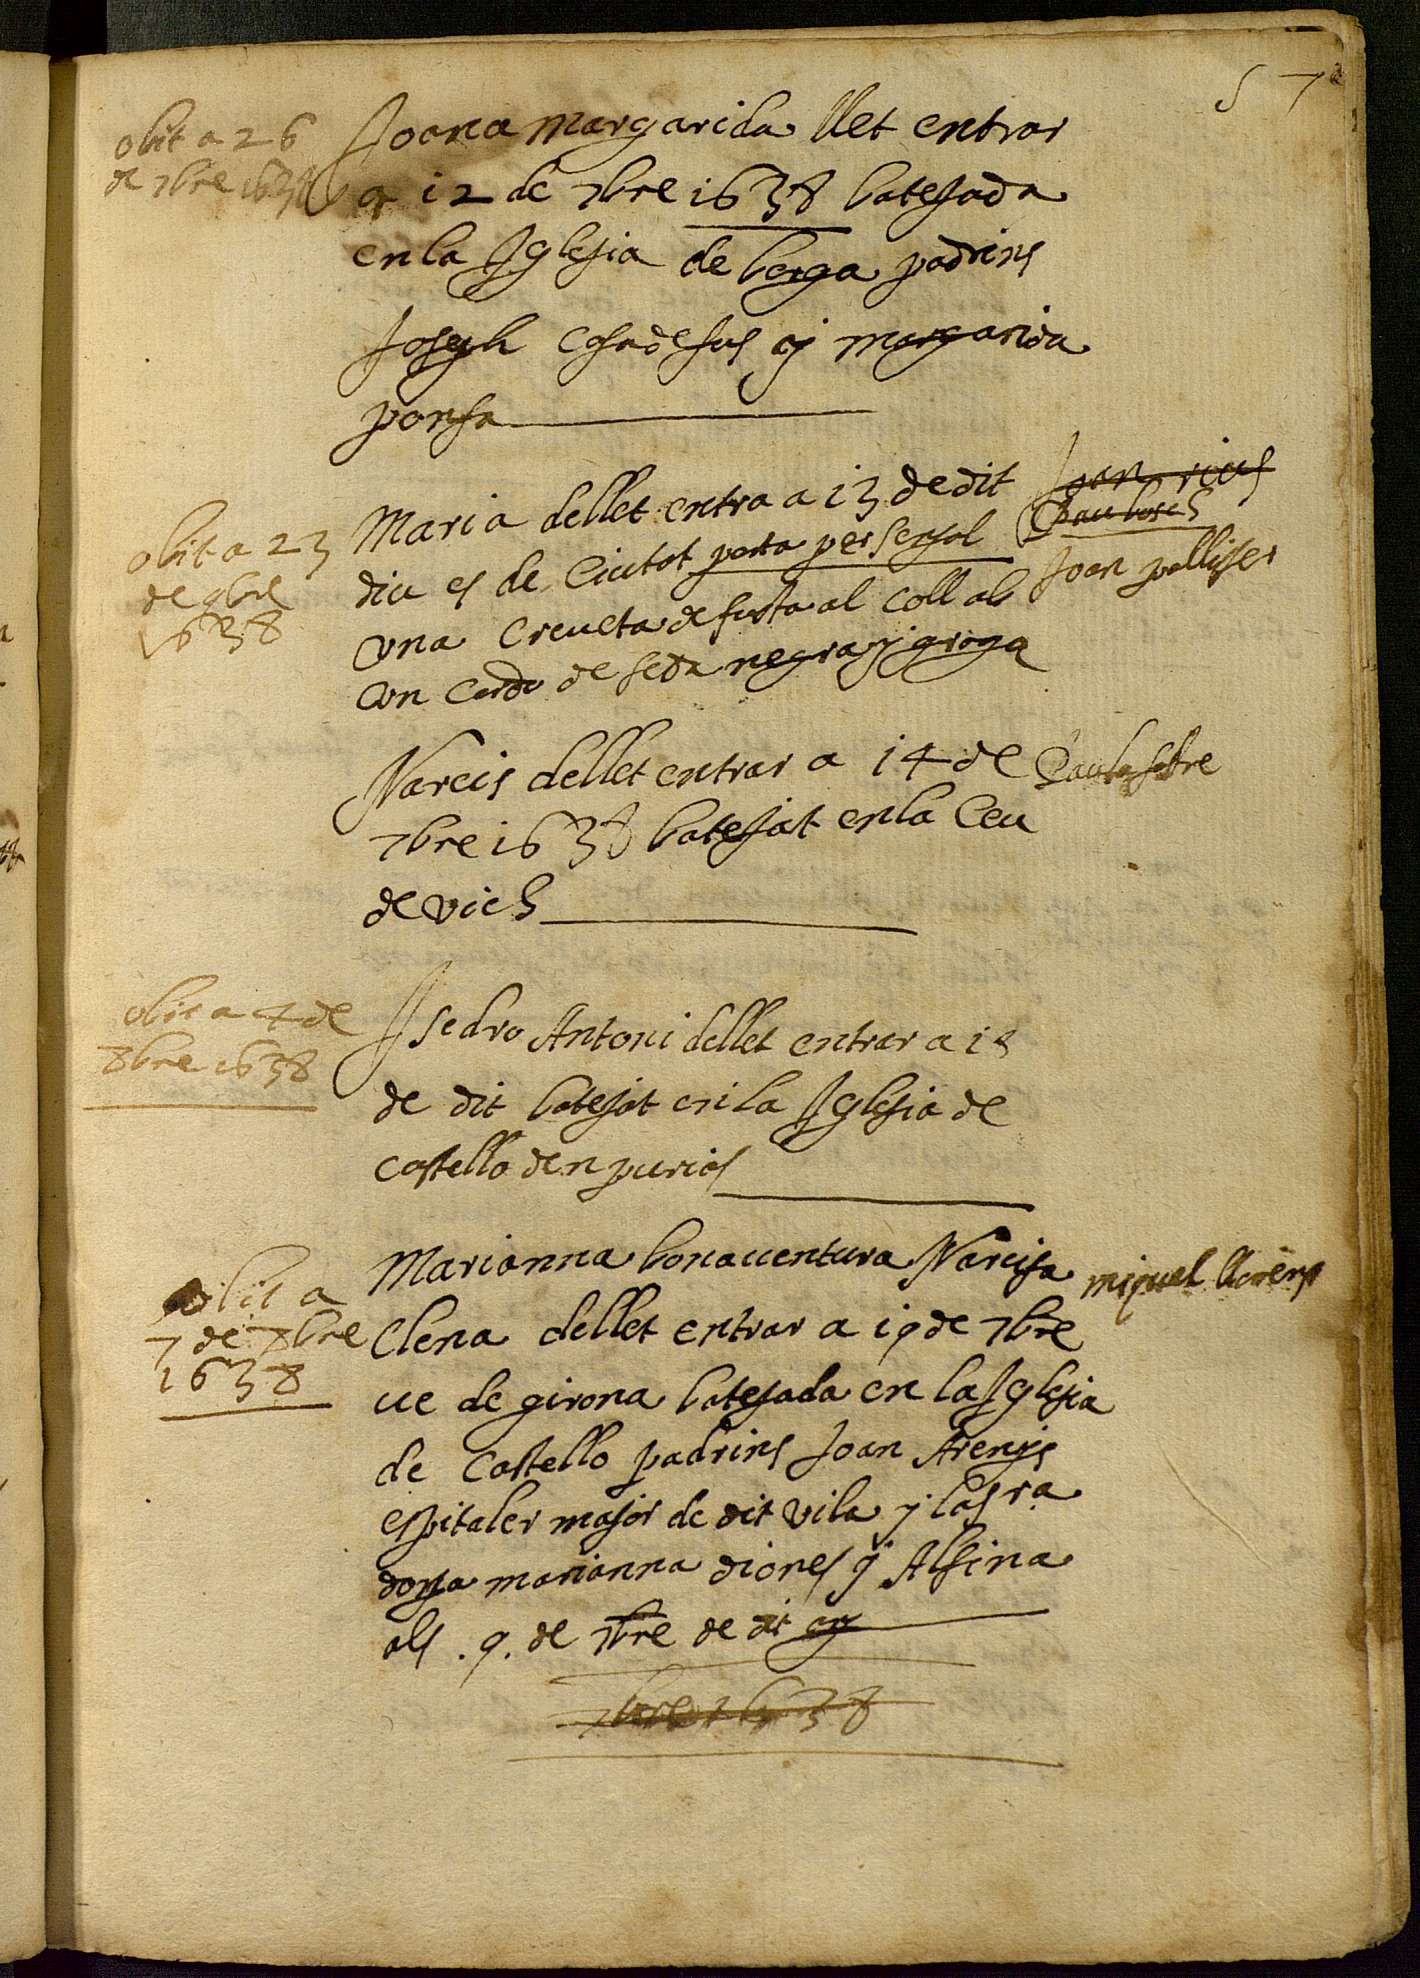 57
obit a 26
de 7bre 1638
Joana Margarida llet entrar
a 12 de 7bre 1638 batejada
en la Iglesia de berga padrins
Joseph Casadesus y margarida
ponsa
obit a 23
de 9bre
1638
Maria de llet entra a 13 de dit
diu es de Ciutat porta per senyal
una creueta de fusta al coll ab
un cordo de seda negra y groga
Joan rius
Pau bosch
Joan pellisser
Narcis de llet entrar a 14 de
7bre 1638 batejat en la Ceu
de vich
Paula
obit a 4 de
8bre 1638
Isedro Antoni de llet entrar a 18
de dit batejat en la Iglesia de
castello denpurias
obit a
7 de 7bre
1638
Marianna bonauentura Narcisa
Elena de llet entrar a 19 de 7bre
ue de girona batejada en la Iglesia
de Castello padrins Joan Arenys
espitaler major de dit vila y la sra
dona marianna diones y Alsina
als .9. de 7bre de dit any
miquel
7bre 1638